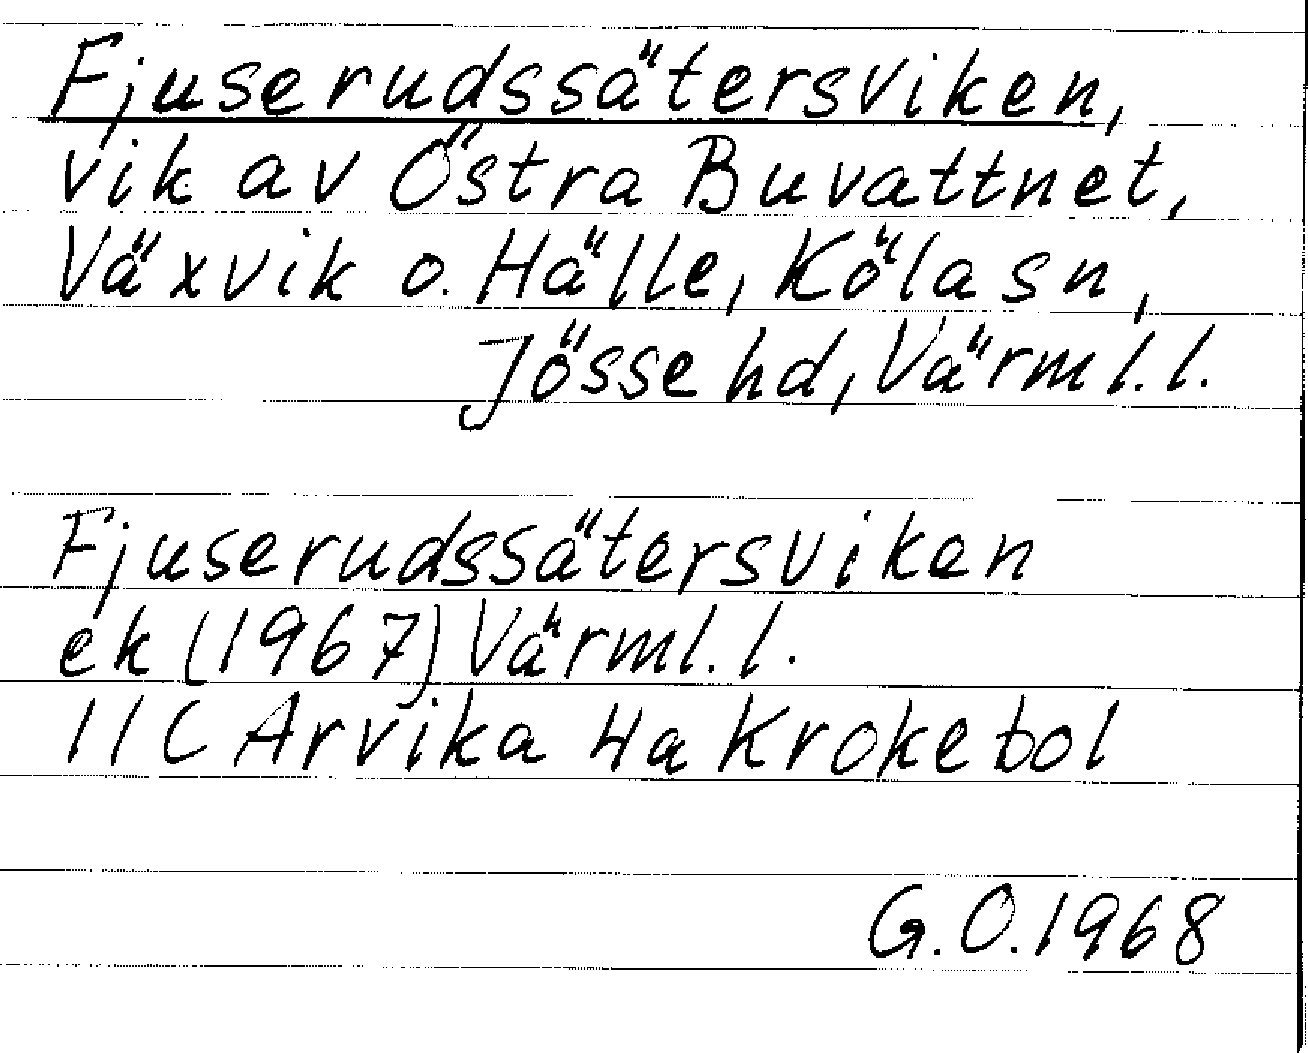 Fjuserudssätersviken,
vik av Östra Buvattnet,
Växvik o. Hälle, Köla sn,
Jösse hd, Värml. l.
Fjuserudssätersviken
ek (1967) Värml. l.
11C Arvika 4a Krokebol
G.O. 1968